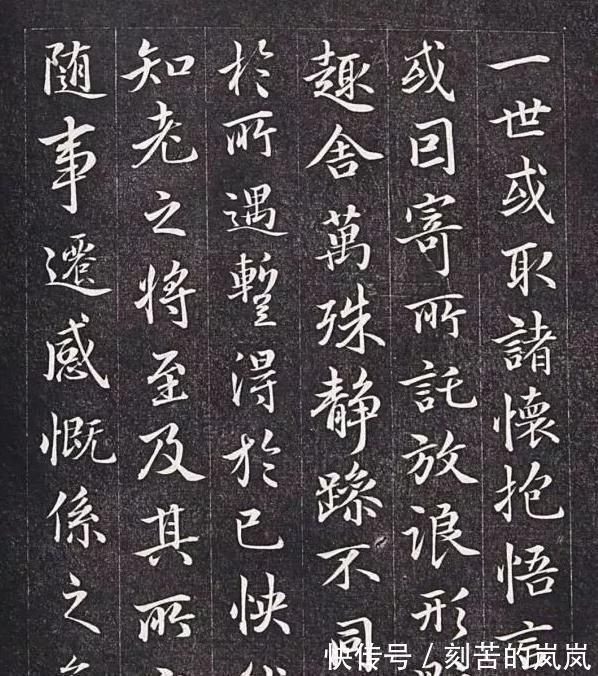 一世或取諸懷抱悟言
或因寄所託放浪形
趣舎萬殊静躁不同
於所遇暫得於已快
知老之将至及其所
随事遷感慨係之
快传号/刻苦的岚岚